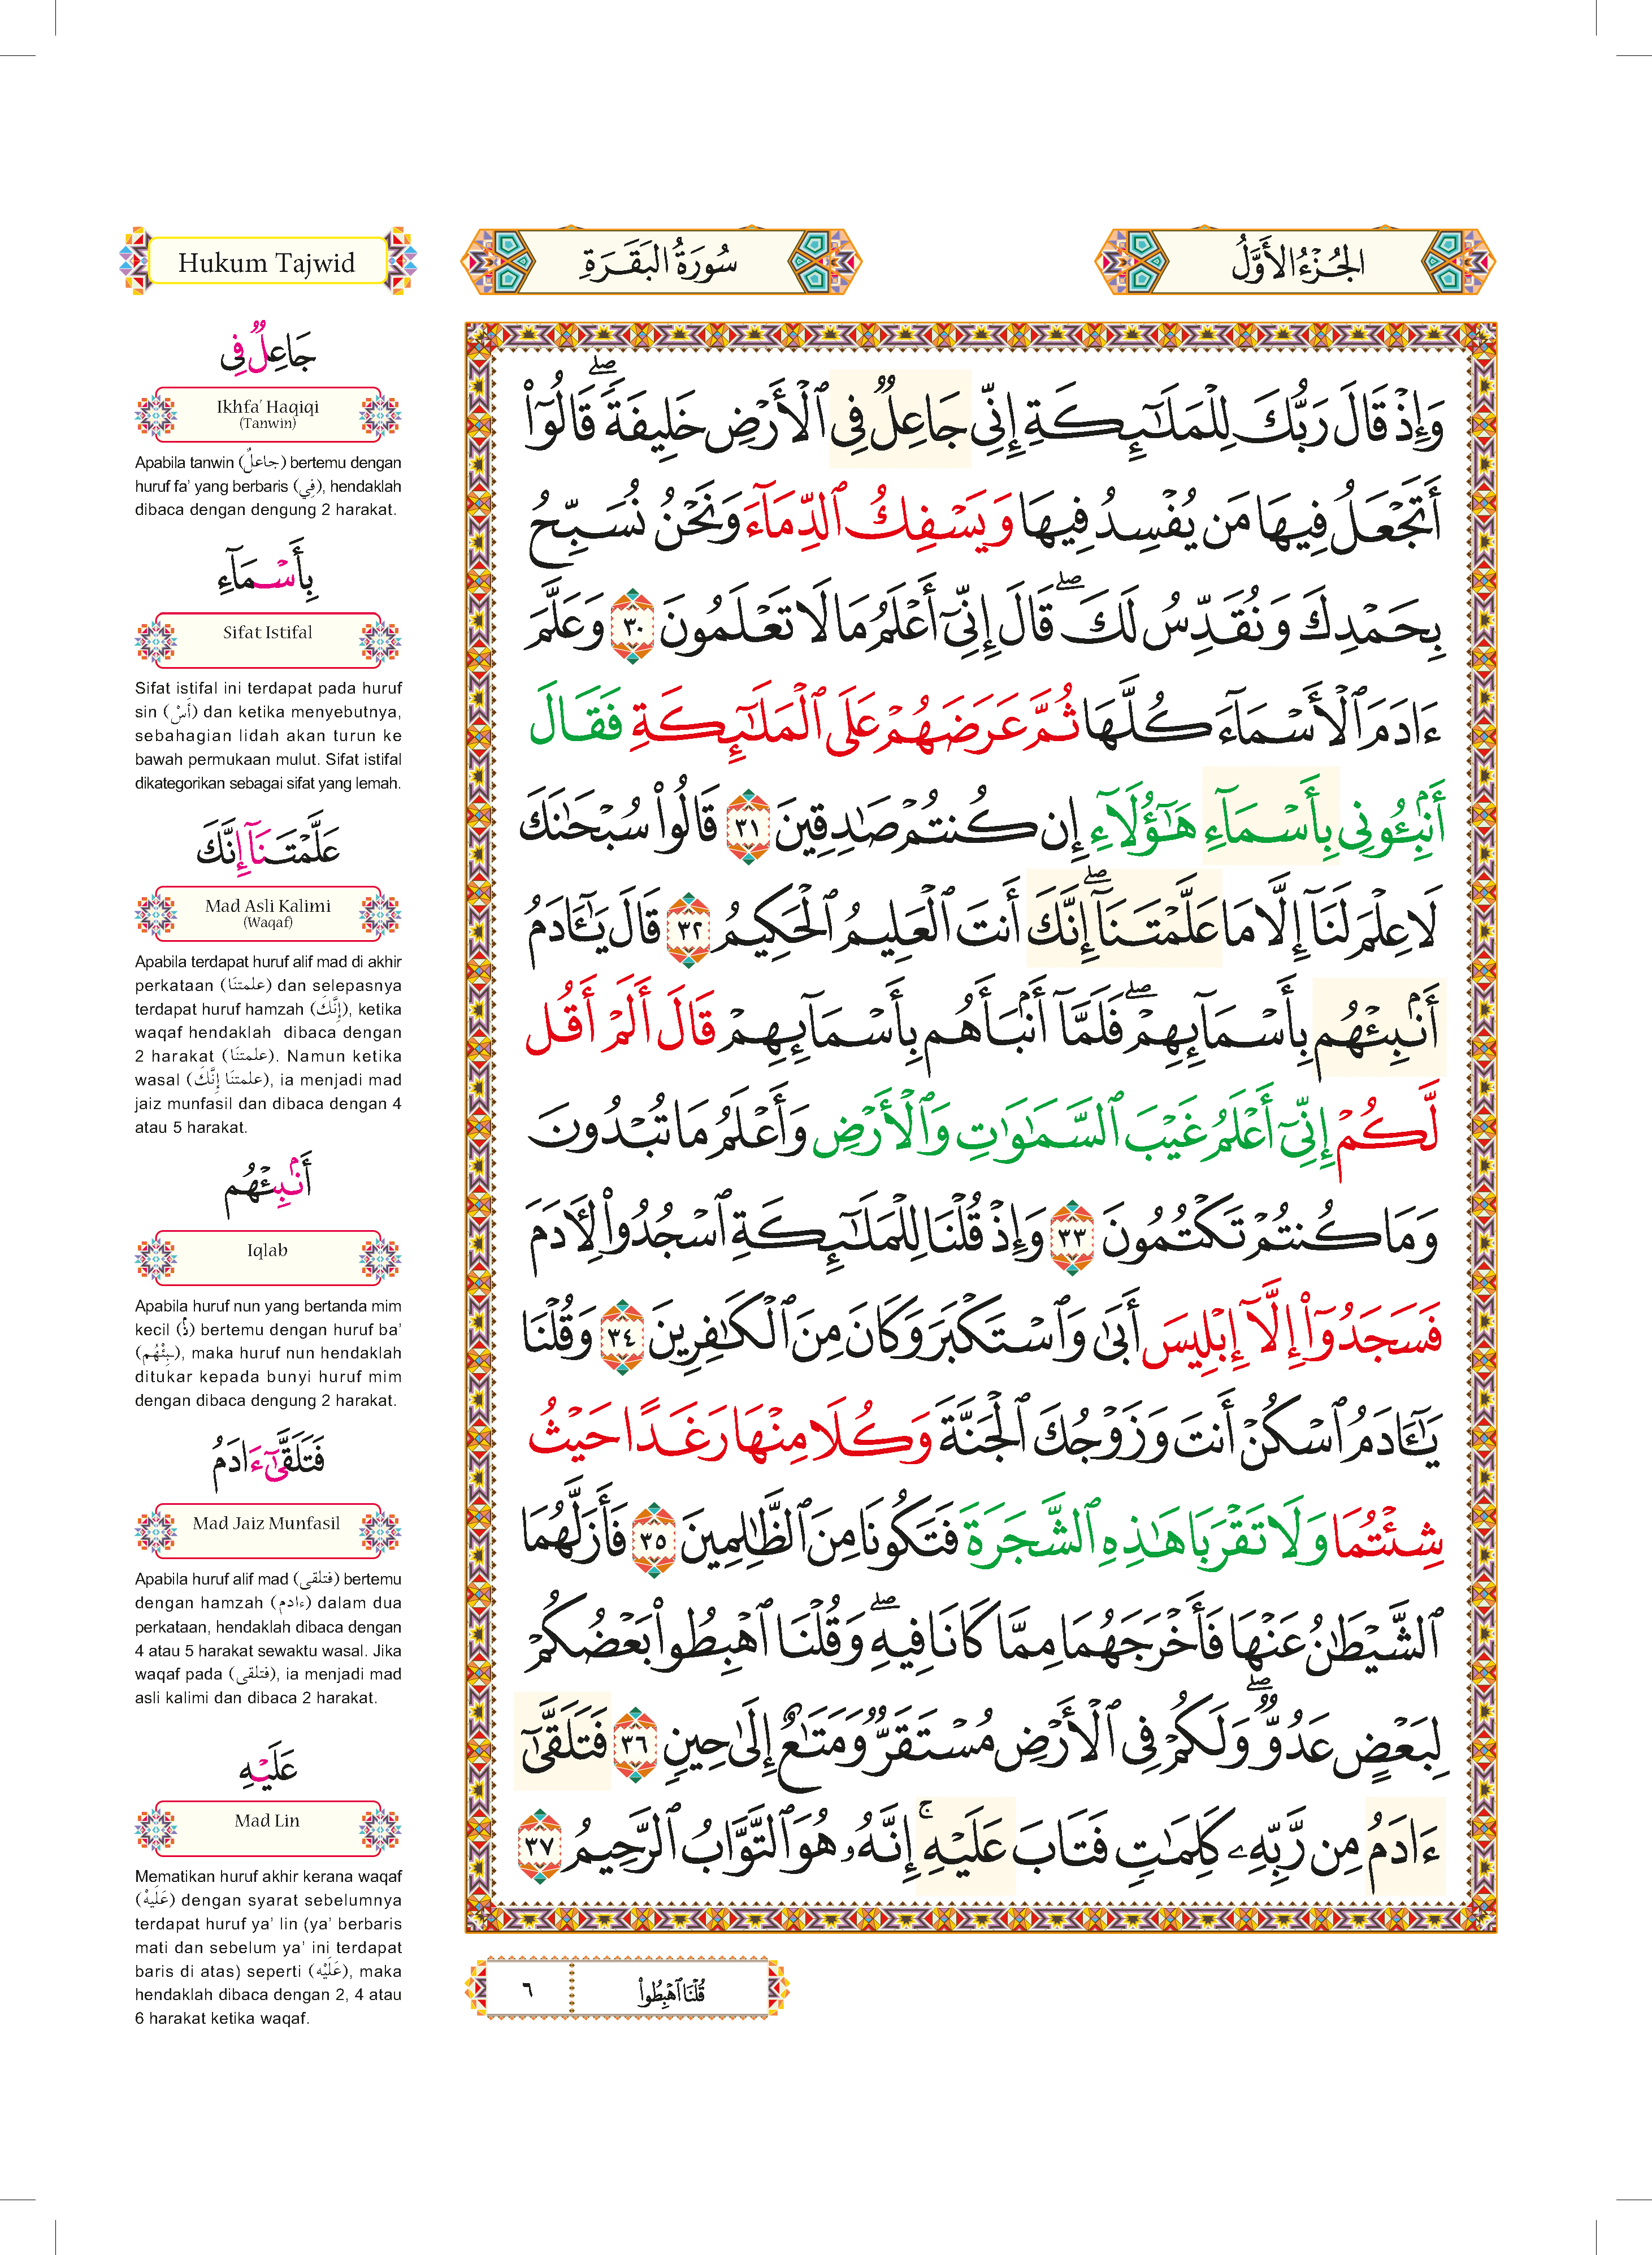 Hukum Tajwid
سُورَةُ البَقَرَةِ
الجُزْءُ الأَوَّلُ
جَاعِلٌ فِى
Ikhfa' Haqiqi
(Tanwin)
Apabila tanwin (جاعلٌ) bertemu dengan
huruf fa' yang berbaris (فِي), hendaklah
dibaca dengan dengung 2 harakat.
بِأَسْمَآءِ
Sifat Istifal
Sifat istifal ini terdapat pada huruf
sin (أَسْ) dan ketika menyebutnya,
sebahagian lidah akan turun ke
bawah permukaan mulut. Sifat istifal
dikategorikan sebagai sifat yang lemah.
عَلَّمْتَنَآ إِنَّكَ
Mad Asli Kalimi
(Waqaf)
Apabila terdapat huruf alif mad di akhir
perkataan (علمتنَا) dan selepasnya
terdapat huruf hamzah (إِنَّكَ), ketika
waqaf hendaklah dibaca dengan
2 harakat (علمتنَا). Namun ketika
wasal (علمتنَا إِنَّكَ), ia menjadi mad
jaiz munfasil dan dibaca dengan 4
atau 5 harakat.
أَنۢبِئْهُم
Iqlab
Apabila huruf nun yang bertanda mim
kecil (نۢ) bertemu dengan huruf ba'
(ـبِئْهُم), maka huruf nun hendaklah
ditukar kepada bunyi huruf mim
dengan dibaca dengung 2 harakat.
فَتَلَقَّىٰٓ ءَادَمُ
Mad Jaiz Munfasil
Apabila huruf alif mad (فتلقى) bertemu
dengan hamzah (ءادم) dalam dua
perkataan, hendaklah dibaca dengan
4 atau 5 harakat sewaktu wasal. Jika
waqaf pada (فتلقى), ia menjadi mad
asli kalimi dan dibaca 2 harakat.
عَلَيْهِ
Mad Lin
Mematikan huruf akhir kerana waqaf
(عَلَيْهْ) dengan syarat sebelumnya
terdapat huruf ya' lin (ya' berbaris
mati dan sebelum ya' ini terdapat
baris di atas) seperti (عَلَيْه), maka
hendaklah dibaca dengan 2, 4 atau
6 harakat ketika waqaf.
وَإِذْ قَالَ رَبُّكَ لِلْمَلَٰٓئِكَةِ إِنِّى جَاعِلٌ فِى ٱلْأَرْضِ خَلِيفَةً ۖ قَالُوٓا۟
أَتَجْعَلُ فِيهَا مَن يُفْسِدُ فِيهَا وَيَسْفِكُ ٱلدِّمَآءَ وَنَحْنُ نُسَبِّحُ
بِحَمْدِكَ وَنُقَدِّسُ لَكَ ۖ قَالَ إِنِّىٓ أَعْلَمُ مَا لَا تَعْلَمُونَ ٣٠ وَعَلَّمَ
ءَادَمَ ٱلْأَسْمَآءَ كُلَّهَا ثُمَّ عَرَضَهُمْ عَلَى ٱلْمَلَٰٓئِكَةِ فَقَالَ
أَنۢبِـُٔونِى بِأَسْمَآءِ هَٰٓؤُلَآءِ إِن كُنتُمْ صَٰدِقِينَ ٣١ قَالُوا۟ سُبْحَٰنَكَ
لَا عِلْمَ لَنَآ إِلَّا مَا عَلَّمْتَنَآ ۖ إِنَّكَ أَنتَ ٱلْعَلِيمُ ٱلْحَكِيمُ ٣٢ قَالَ يَٰٓـَٔادَمُ
أَنۢبِئْهُم بِأَسْمَآئِهِمْ ۖ فَلَمَّآ أَنۢبَأَهُم بِأَسْمَآئِهِمْ قَالَ أَلَمْ أَقُل
لَّكُمْ إِنِّىٓ أَعْلَمُ غَيْبَ ٱلسَّمَٰوَٰتِ وَٱلْأَرْضِ وَأَعْلَمُ مَا تُبْدُونَ
وَمَا كُنتُمْ تَكْتُمُونَ ٣٣ وَإِذْ قُلْنَا لِلْمَلَٰٓئِكَةِ ٱسْجُدُوا۟ لِـَٔادَمَ
فَسَجَدُوٓا۟ إِلَّآ إِبْلِيسَ أَبَىٰ وَٱسْتَكْبَرَ وَكَانَ مِنَ ٱلْكَٰفِرِينَ ٣٤ وَقُلْنَا
يَٰٓـَٔادَمُ ٱسْكُنْ أَنتَ وَزَوْجُكَ ٱلْجَنَّةَ وَكُلَا مِنْهَا رَغَدًا حَيْثُ
شِئْتُمَا وَلَا تَقْرَبَا هَٰذِهِ ٱلشَّجَرَةَ فَتَكُونَا مِنَ ٱلظَّٰلِمِينَ ٣٥ فَأَزَلَّهُمَا
ٱلشَّيْطَٰنُ عَنْهَا فَأَخْرَجَهُمَا مِمَّا كَانَا فِيهِ ۖ وَقُلْنَا ٱهْبِطُوا۟ بَعْضُكُمْ
لِبَعْضٍ عَدُوٌّ ۖ وَلَكُمْ فِى ٱلْأَرْضِ مُسْتَقَرٌّ وَمَتَٰعٌ إِلَىٰ حِينٍ ٣٦ فَتَلَقَّىٰٓ
ءَادَمُ مِن رَّبِّهِۦ كَلِمَٰتٍ فَتَابَ عَلَيْهِ ۚ إِنَّهُۥ هُوَ ٱلتَّوَّابُ ٱلرَّحِيمُ ٣٧
قُلْنَا ٱهْبِطُوا۟
٦